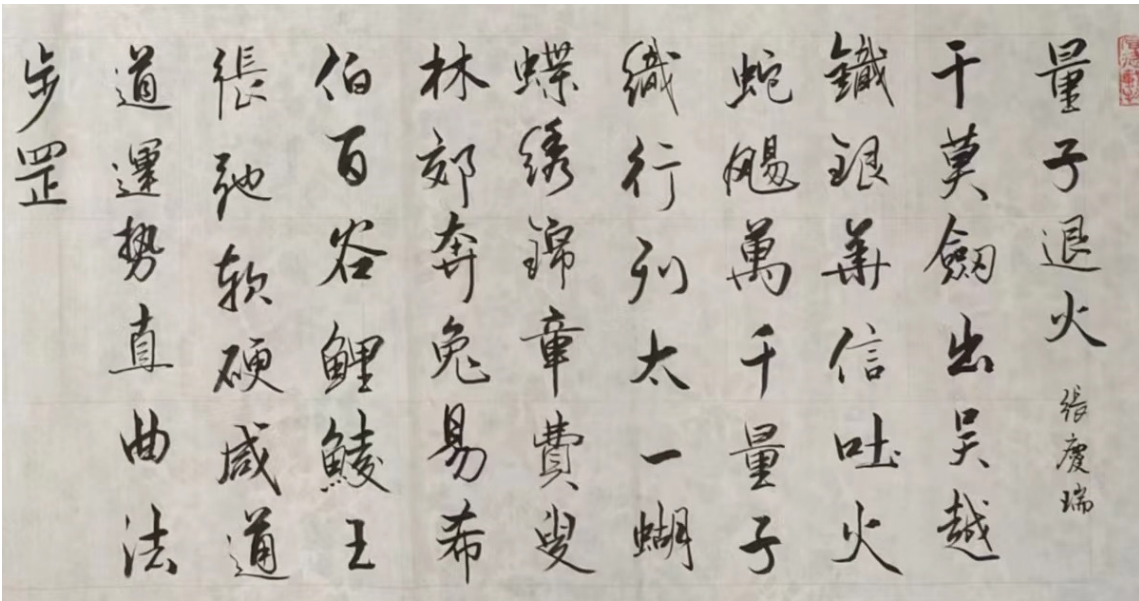 量子退火 張慶瑞
干莫劍出吴越
鐵銀華信吐火
蛇颺萬千量子
織行列太一蝴
蝶绣錦章費叟
林郊奔兔易希
伯百谷鯉鯪王
張弛软硬咸通
道運勢直曲法
步罡